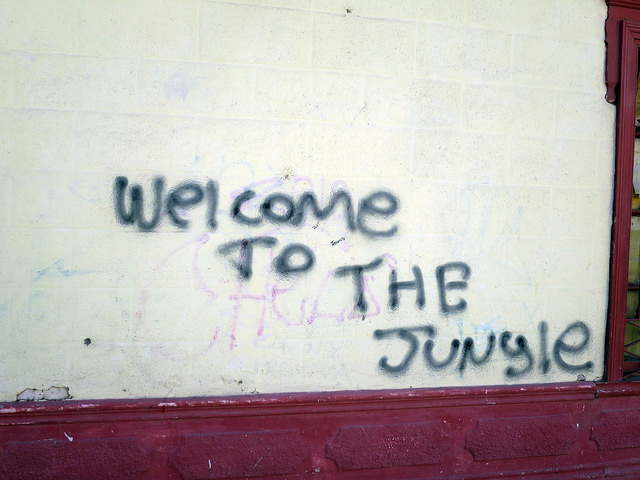 Welcome
To THE
Jungle